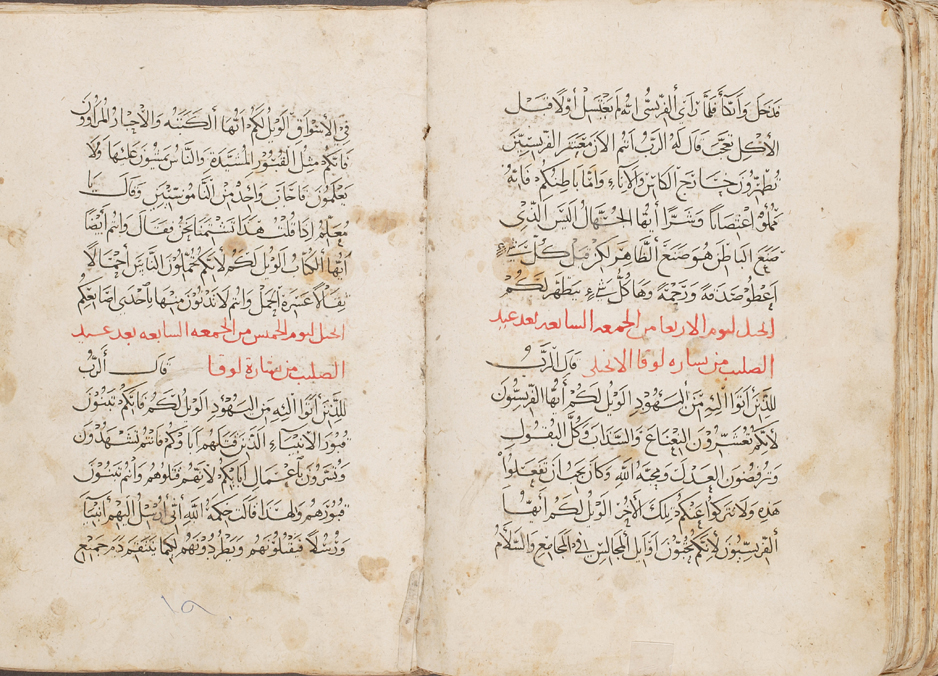 فدخل واتكأ فلما رأى الفريسي انه لم يغتسل أولا قبل
الأكل تعجب قال له الرب أنتم الآن معشر الفريسيين
تطهرون خارج الكاس والاناء وامّا باطنكم فانه
مملوء اغتصابا وشرّا أيها الجهّال اليس الذي
صنع الباطن هو صنع الظاهر لكن قبل كل شيء
اعطوا صدقة ورحمة وها كل شيء يتطهّر لكم
انجيل ليوم الاربعا من الجمعه السابعه بعد عيد
الصليب من بشاره لوقا الانجيلي قال الرّب
للّذين أتوا اليه من اليهود الويل لكم أيّها الفرّيسيّون
لانكم تعشّرون النعناع والسذاب وكلّ البقول
وترفضون العدل ومحبّة الله وكان يجب ان تفعلوا
هذه ولا تتركوا عنكم تلك الأخر الويل لكم أيها
الفرّيسيّون لانّكم تحبّون اوايل المجالس في المجامع والسّلام
في الاسواق الويل لكم أيّها الكتبة والأحبار المراوون
فانكم مثل القبور المشيّدة والنّاس يمشون عليها ولا
يعلمون فاجاب واحد من النّاموسيّين وقال يا
معلّم إذا قلت هذا تشتمنا نحن فقال وانتم أيضا
أيّها الكتّاب الويل لكم لأنكم تحمّلون النّاس أحمالا
ثقالا عسرة الحمل وانتم لا تدنون منها باحدى اصابعكم
انجيل ليوم الخميس من الجمعه السابعه بعد عيد
الصليب من بشارة لوقا قال الرّبّ
للّذين أتوا اليه من اليهود الويل لكم فانكم تبنون
قبور الأنبياء الّذين قتلهم اباوكم فانتم تشهدون
وتسرّون باعمال ابايكم لأنهم قتلوهم وأنتم تبنون
قبورهم ولهذا قالت حكمة الله أنّي أرسل اليهم أنبيا
ورسلا فيقتلونهم ويطردونهم لكيما ينتقم دم جميع
١٩